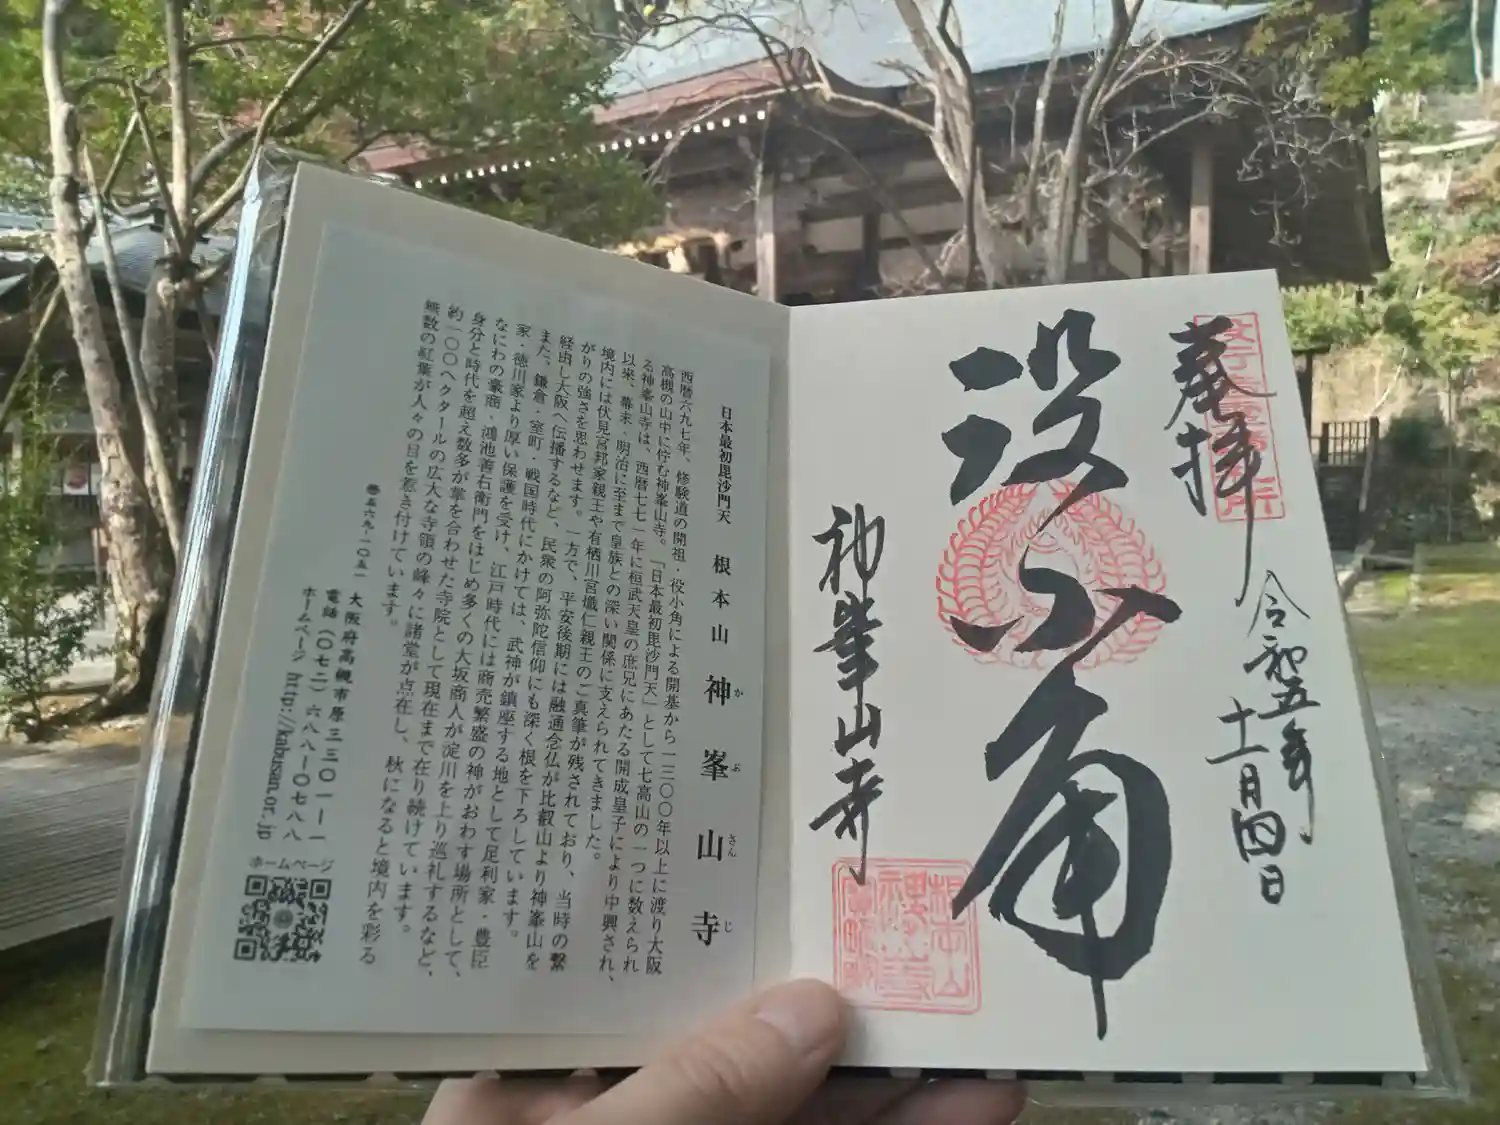 奉拝
令和五年
十一月四日
役小角
神峯山寺
日本最初毘沙門天 根本山 神峯山寺
かぶさんじ
西暦六九七年、修験道の開祖・役小角による開基から一三〇〇年以上に渡り大阪
高槻の山中に佇む神峯山寺。「日本最初毘沙門天」として七高山の一つに数えられ
る神峯山寺は、西暦七七一年に桓武天皇の庶兄にあたる開成皇子により中興され、
以来、幕末・明治に至まで皇族との深い関係に支えられてきました。
境内には伏見宮邦家親王や有栖川宮熾仁親王のご真筆が残されており、当時の繋
がりの強さを思わせます。一方で、平安後期には融通念仏が比叡山より神峯山を
経由し大阪へ伝播するなど、民衆の阿弥陀信仰にも深く根を下ろしています。
また、鎌倉・室町・戦国時代にかけては、武神が鎮座する地として足利家・豊臣
家・徳川家より厚い保護を受け、江戸時代には商売繁盛の神がおわす場所として、
なにわの豪商・鴻池善右衛門をはじめ多くの大坂商人が淀川を上り巡礼するなど、
身分と時代を超え数多が掌を合わせた寺院として現在まで在り続けています。
約一〇〇ヘクタールの広大な寺領の峰々に諸堂が点在し、秋になると境内を彩る
無数の紅葉が人々の目を惹き付けています。
〠五六九-一〇五一 大阪府高槻市原三三〇一-一
電話(〇七二)六八八-〇七八八
ホームページ http://kabusan.or.jp
ホームページ